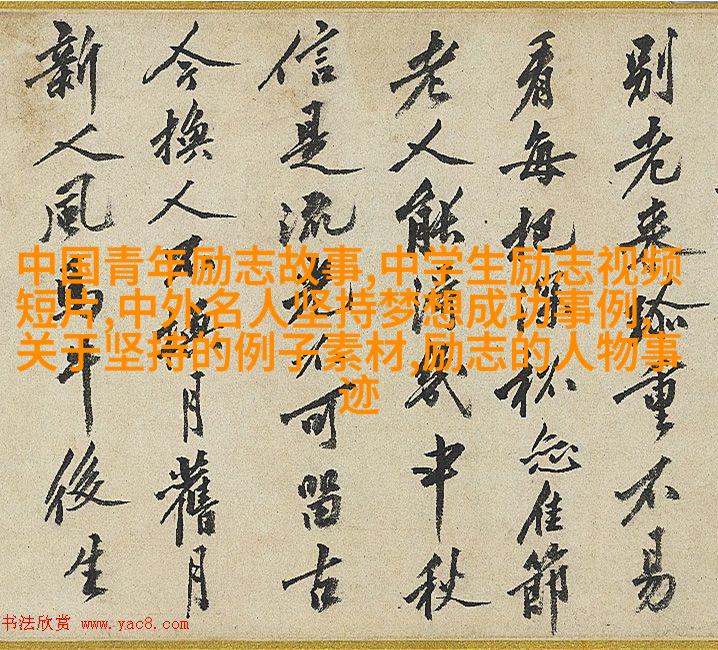 別老来珍重不易
看每把深杯恋佳節
老人能得幾中秋
信是流光不可留古
今換人不換月舊月
新人風馬牛後生
中国青年励志故事,中学生励志视频
短片,中外名人坚持梦想成功事例,
关于坚持的例子素材,励志的人物事
迹
书法欣赏 www.yac8.com